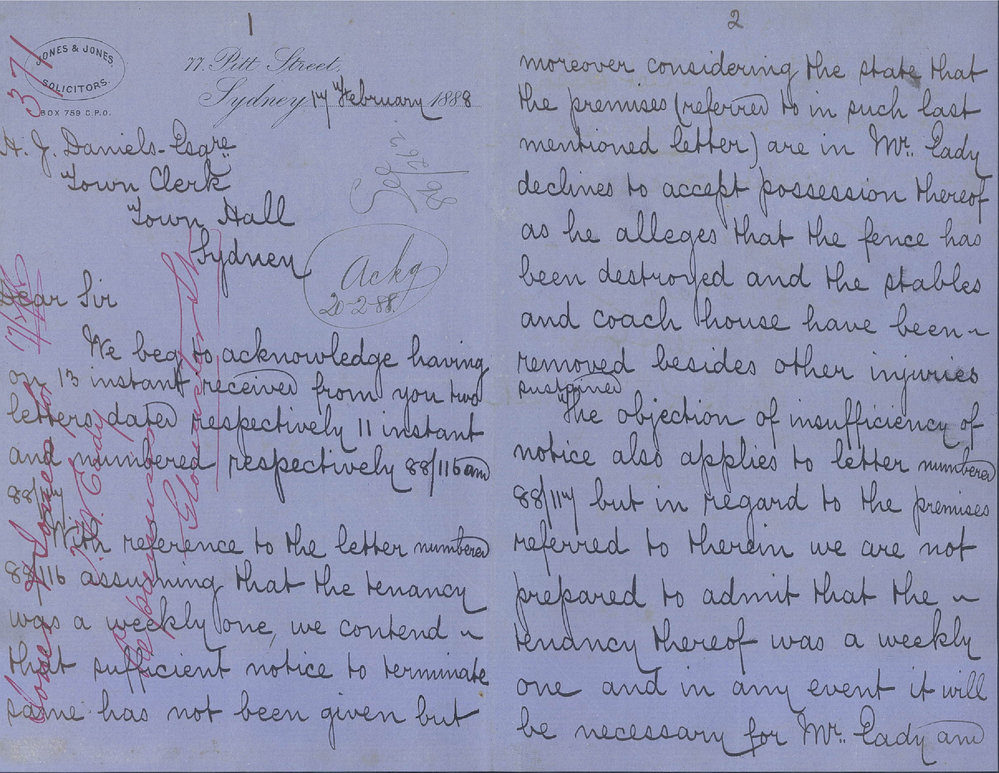 1
371
JONES & JONES
SOLICITORS.
BOX 759 G.P.O.
77. Pitt Street,
Sydney 17 February 1888
H. J. Daniels Esqre
Town Clerk
Town Hall
Sydney
Ackg
20-2-88
Dear Sir
We beg to acknowledge having
on 13 instant received from you two
letters dated respectively 11 instant
and numbered respectively 88/116 and
88/117
With reference to the letter numbered
88/116 assuming that the tenancy
was a weekly one, we contend ~
that sufficient notice to terminate
same has not been given but
2
moreover considering the state that
the premises (referred to in such last
mentioned letter) are in Mr. Eady
declines to accept possession thereof
as he alleges that the fence has
been destroyed and the stables
and coach house have been ~
removed besides other injuries
sustained
The objection of insufficiency of
notice also applies to letter numbered
88/117 but in regard to the premises
referred to therein we are not
prepared to admit that the ~
tenancy thereof was a weekly
one and in any event it will
be necessary for Mr. Eady and